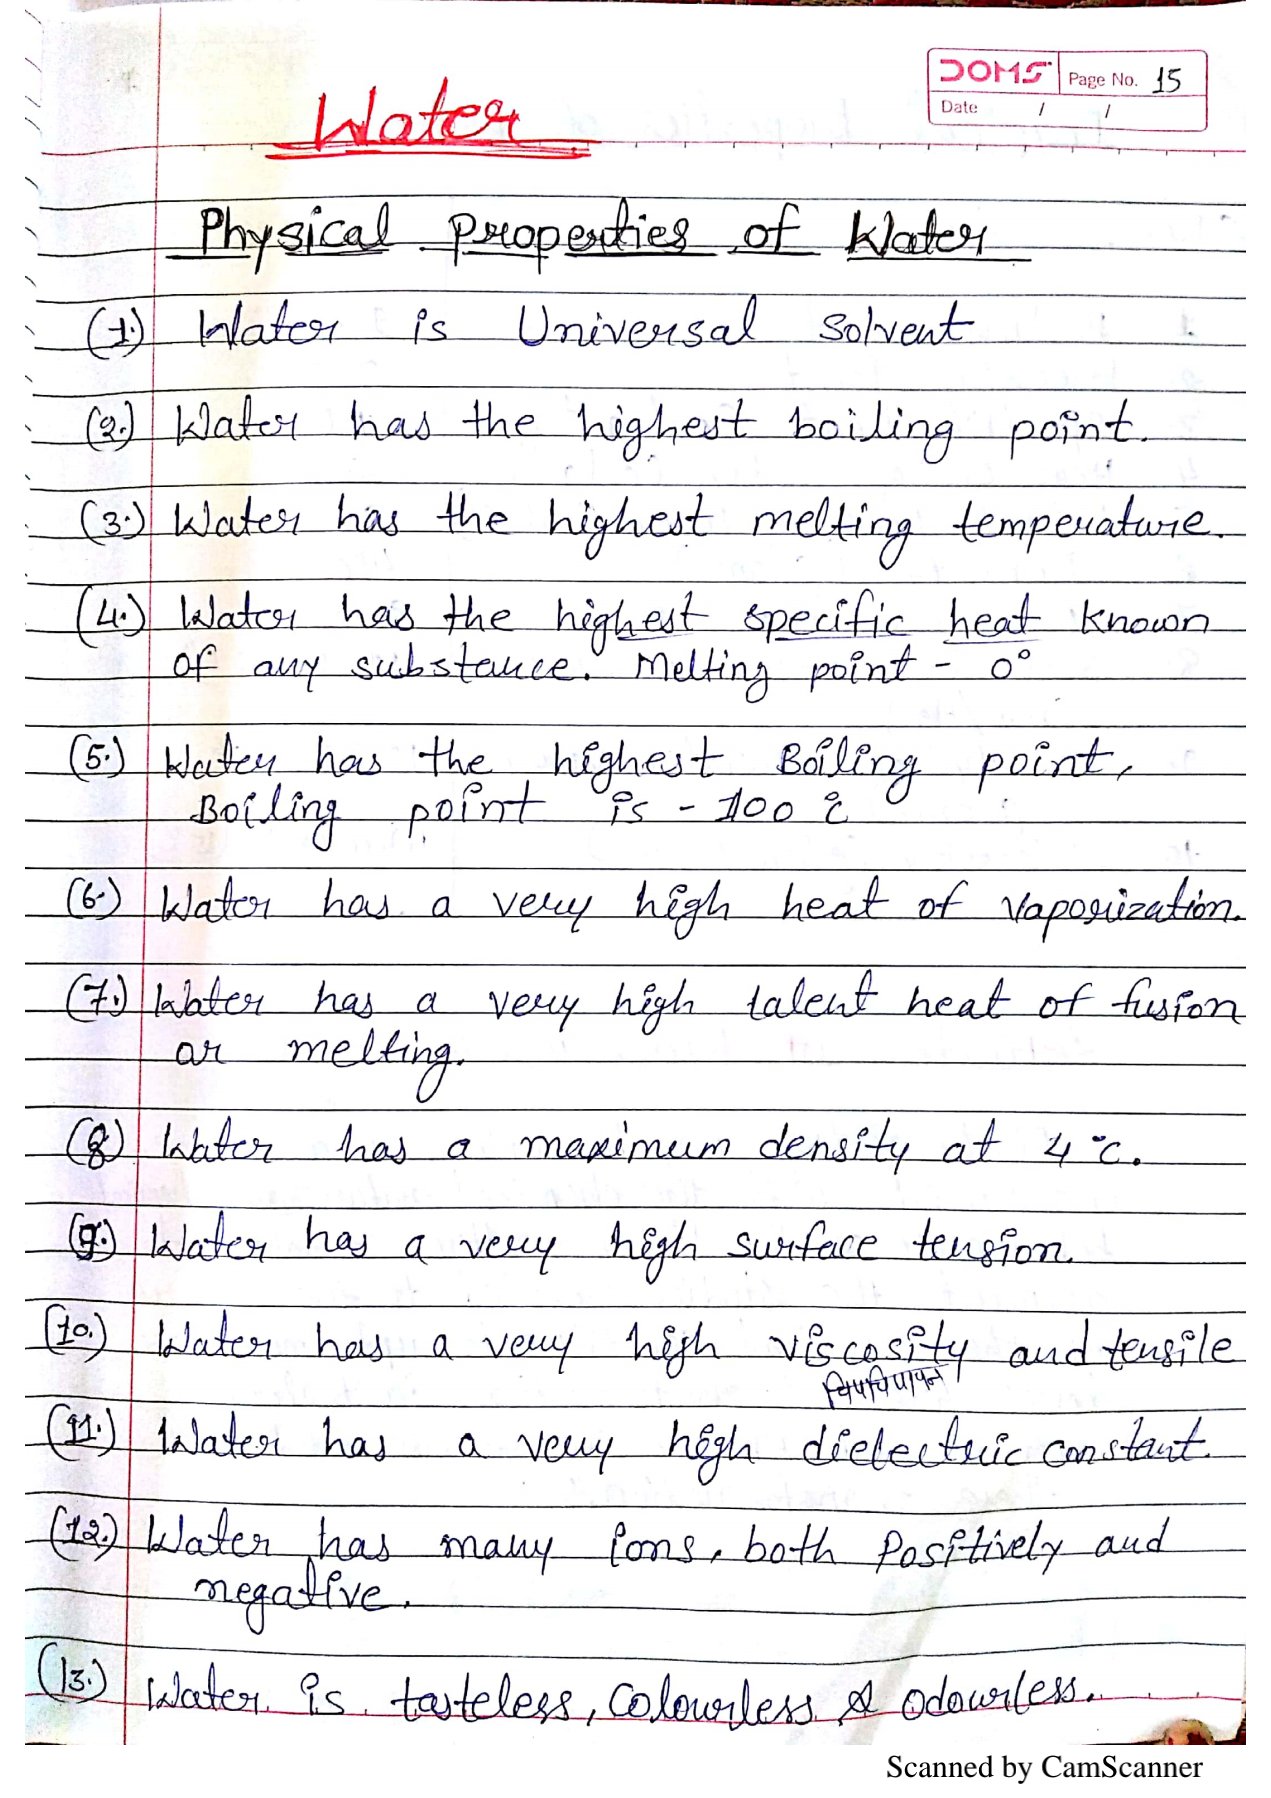 DOMS Page No. 15
Date / /
Water
Physical Properties of Water
(1.) Water is Universal Solvent
(2.) Water has the highest boiling point.
(3.) Water has the highest melting temperature.
(4.) Water has the highest specific heat known
of any substance. Melting point - 0°
(5.) Water has the highest Boiling point,
Boiling point is - 100 °c
(6.) Water has a very high heat of vaporization.
(7.) Water has a very high talent heat of fusion
ar melting.
(8) Water has a maximum density at 4°c.
(9.) Water has a very high surface tension.
(10.) Water has a very high viscosity and tensile
(11.) Water has a very high dielectric constant.
(12.) Water has many ions, both Positively and
negative.
(13.) Water is tasteless, Colourless & odourless.
Scanned by CamScanner